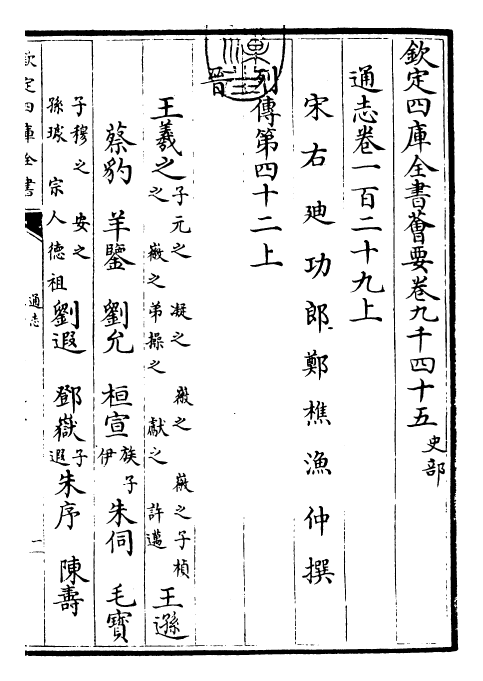 欽定四庫全書薈要卷九千四十五 史部
通志卷一百二十九上
宋右迪功郎鄭樵漁仲撰
列傳第四十二上
晉
王羲之 子元之 凝之 徽之 徽之子楨之 徽之弟操之 獻之 許邁 王遜
蔡豹 羊鑒 劉允 桓宣 族子伊 朱伺 毛寶
子穆之 安之 孫璩 宗人德祖 劉遐 鄧嶽 子遐 朱序 陳壽
欽定四庫全書
通志